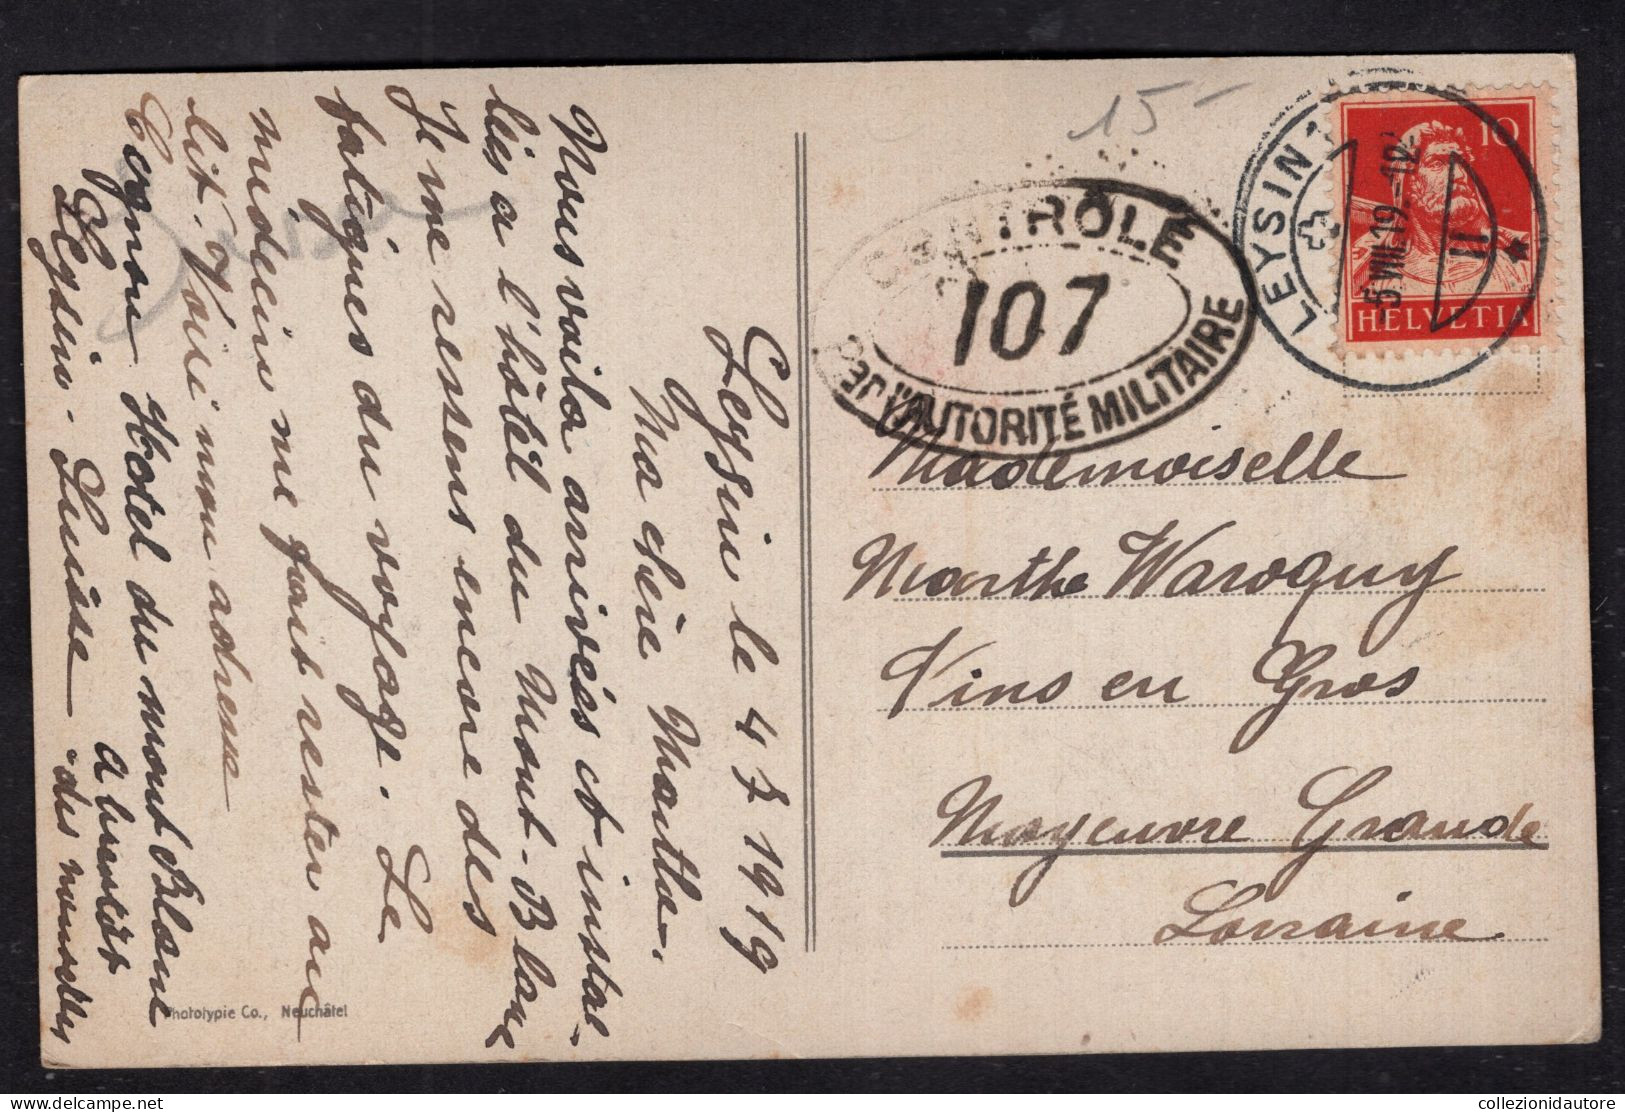 Leysin le 4 8 1919
Ma chère Marthe.
Nous voila arrivés et instal-
lés a l'hôtel du Mont-Blanc
Je me ressens encore des
fatigues du voyage. Le
médecin me fait rester au
lit. Voici mon adresse
Hotel du mont Blanc
Leysin. Suisse
a bientôt
des nouvelles
Phototypie Co., Neuchâtel
15-
CONTRÔLÉ
107
Par l'AUTORITÉ MILITAIRE
LEYSIN 1
-5.VIII.19.-12
II
10
HELVETIA
Mademoiselle
Marthe Waroquy
Vins en Gros
Moyeuvre Grande
Lorraine
collezionidautore